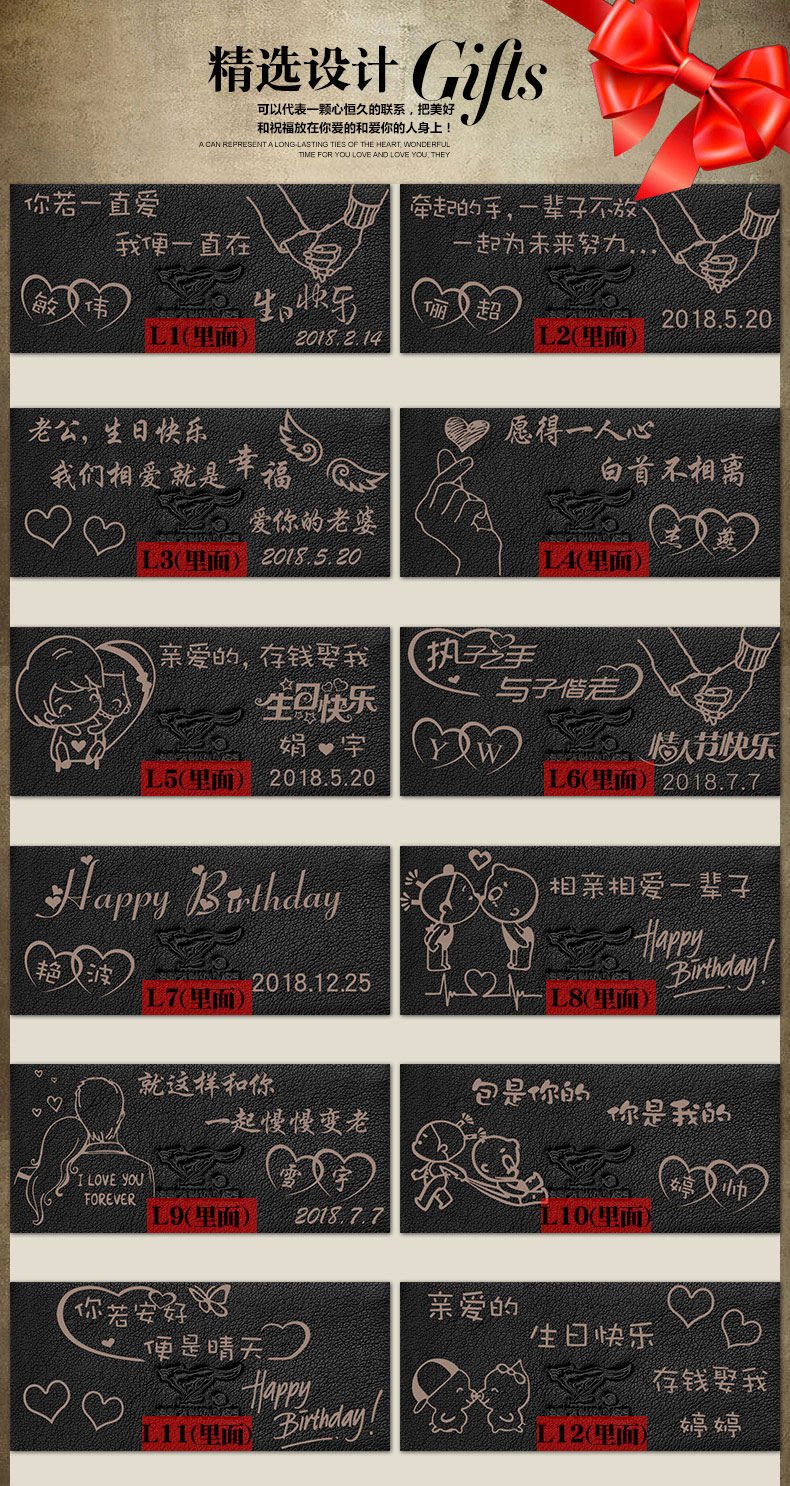 精选设计 Gifts
可以代表一颗心恒久的联系，把美好
和祝福放在你爱的和爱你的人身上！
A CAN REPRESENT A LONG-LASTING TIES OF THE HEART, WONDERFUL
TIME FOR YOU LOVE AND LOVE YOU, THEY
你若一直爱
我便一直在
敏 伟
生日快乐
L1(里面)
2018.2.14
牵起的手,一辈子不放
一起为未来努力...
俪 超
2018.5.20
L2(里面)
老公,生日快乐
我们相爱就是幸福
爱你的老婆
L3(里面)
2018.5.20
愿得一人心
白首不相离
杰 燕
L4(里面)
亲爱的,存钱娶我
生日快乐
娟 宇
L5(里面)
2018.5.20
执子之手
与子偕老
Y W
情人节快乐
L6(里面)
2018.7.7
Happy Birthday
艳 波
2018.12.25
L7(里面)
相亲相爱一辈子
Happy
Birthday!
L8(里面)
就这样和你
一起慢慢变老
I LOVE YOU
FOREVER
雪 宇
L9(里面)
2018.7.7
包是你的
你是我的
婷 帅
L10(里面)
你若安好
便是晴天
Happy
Birthday!
L11(里面)
亲爱的
生日快乐
存钱娶我
婷婷
L12(里面)